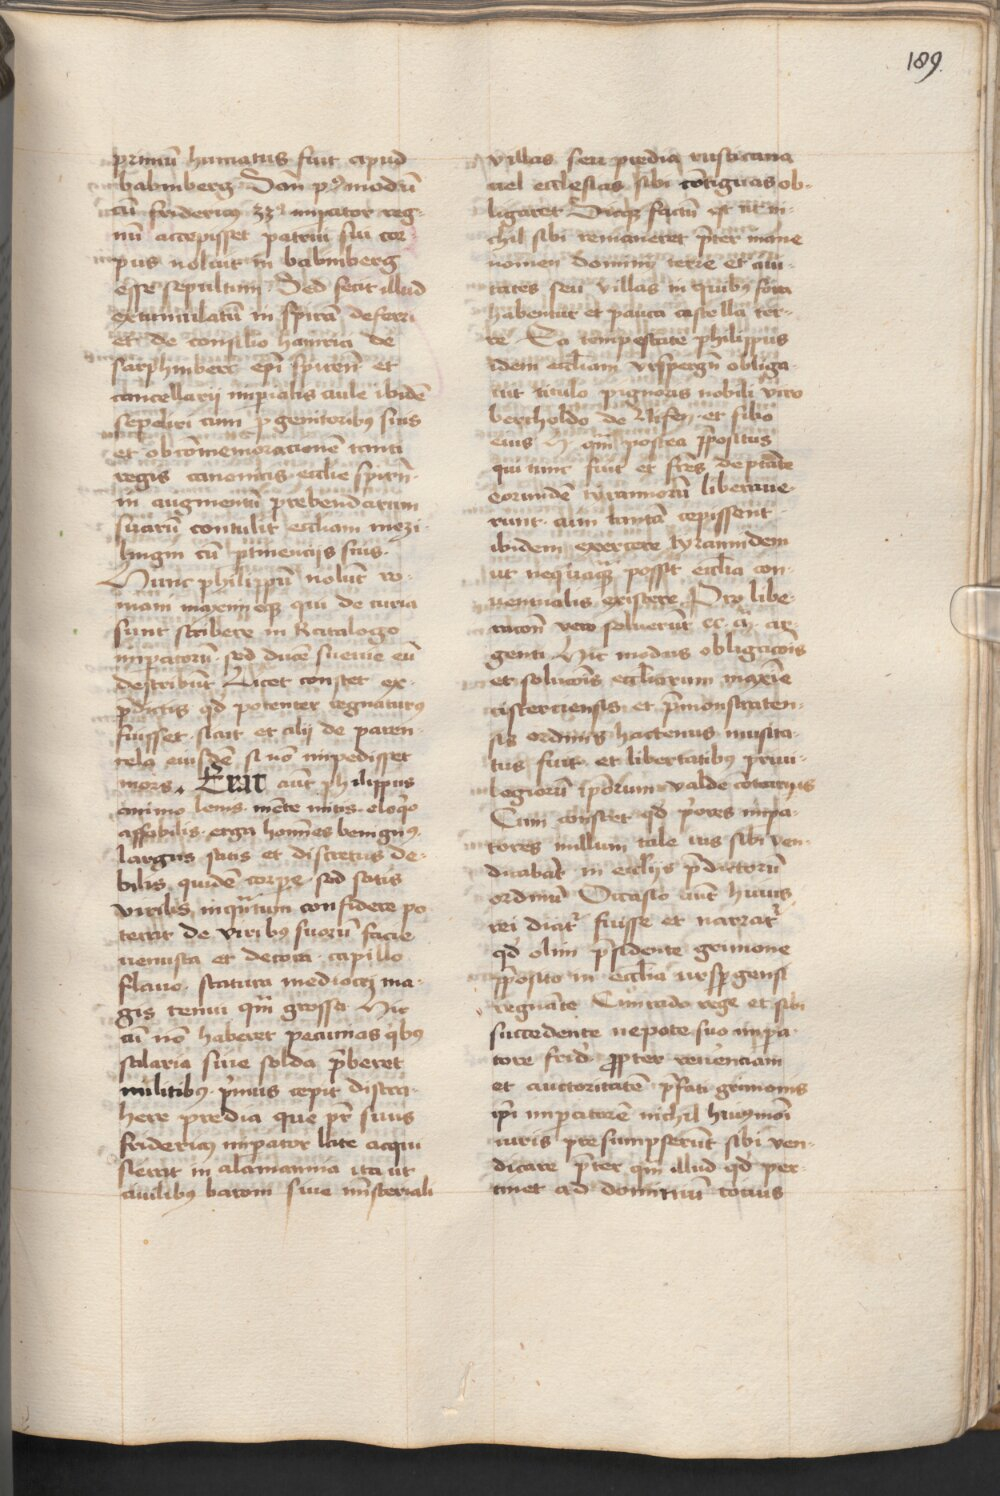 189.
primū humatus fuit apud
babinberg Dam pꝰ modū
cū fridericꝰ imꝑator reg-
nū accepisset patrui sui cor
pus noluit in babinberg
esse sepultum Sed fecit illud
extumulatū in spirā deferri
et de consilio hainrici de
epi spireñ et
cancellarij imꝑialis aule ibidē
sepeliri cum ꝓgenitoribꝰ suis
et ob cōmemoracionē tanti
regis canonicis ecclie spireñ
in augmentū prebendarum
suarū contulit eccliam
cū ꝑtinencijs suis.
Hunc philippū nolūt ro-
mani maximeqꝫ qui de curia
sunt scribere in katalogo
imꝑatorū. sed ducē sueuie eū
describūt Licet constet ex-
p̄dictis qd potenter regnaturꝰ
fuisset. sicut et alij de paren-
tela eiusdē si nō impedisset
mors. Erat aūt philippus
animo lenis. mēte mitis. eloqͦo
affabilis. erga homīes benignꝰ.
largus satis et discretus de-
bilis quidē corꝑe. sed satis
virilis inqͣntum confidere po
terat de viribꝰ suorū facie
venusta et decora. capillo
flauo. statura mediocri ma-
gis tenui qͣm grosso Hic
cū nō haberet pecunias qͥbꝰ
salaria siue solda p̄beret
militibꝰ. pͥmus cepit distra-
here predia que pr̄ suus
fridericꝰ imꝑator late acqui
sierat in alamannia ita ut
cuilibꝰ baroni siue mīsteriali
villas seu predia rusticana
uel ecclesias sibi cōtiguas ob-
ligaret Sicqꝫ factū est ut ni-
chil sibi remaneret p̄ter inane
nomen dominij terre et ciui-
tates seu villas in quibꝰ fora
habentur et pauca castella ter-
re. Ea tempestate philippus
idem eccliam vrsperg̃n obliga-
uit titulo pignoris nobili viro
bertholdo de Nifen. et filio
eius H. qͣm postea p̄positus
qui tunc fuit et frēs de ptāte
eorundē tyrannorū liberaue-
runt. cum tantā cepissent
ibidem exercere tyrannidem
ut nequaqͣꝫ posset ecclia con-
uentualis existere Pro libe-
racōn vero soluerūt cc. m̄. ar-
genti Hic modus obligacōis
et solucōis eccliarum maxīe
cisterciensis et p̄monstraten-
sis ordinis hactenus inusita-
tus fuit et libertatibꝰ priui-
legiorū ip̄orum valde cōtrarius
Cum constet qd pͥores impa-
tores nullum tale ius sibi ven-
dicabāt in ecclijs p̄dictorū
ordinū Occasio aūt huius
rei dicit᷑ fuisse et narrat᷑
qd olim p̄sidente grimone
p̄posito in ecclia vrspgensi
regnāte Cunrado rege et sibi
succedente nepote suo impa-
tore frid̄ ꝓpter reuerenciam
et auctoritatē p̄fati grimonis
ip̄i impatorē nichil huiusmōi
iuris presumpserūt sibi ven-
dicare p̄ter qͣm illud qd per-
tinet ad dominiū totius